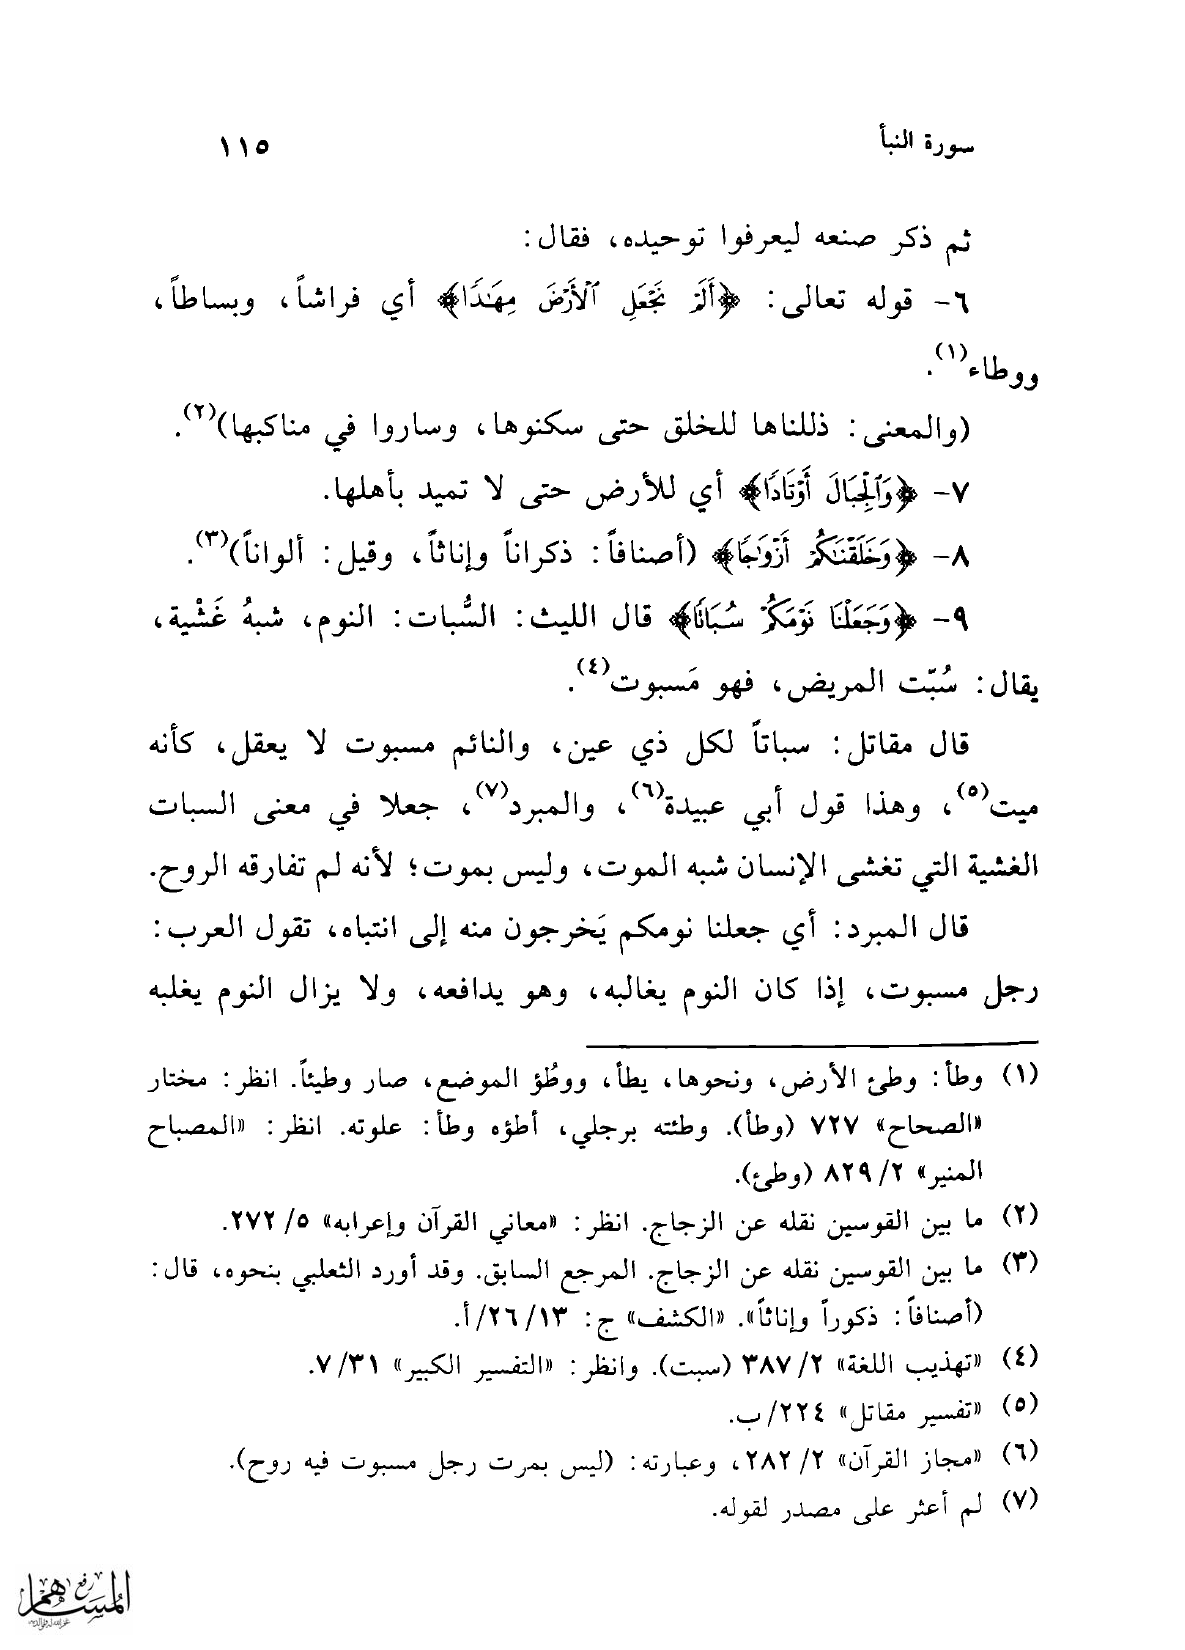 سورة النبأ
١١٥
ثم ذكر صنعه ليعرفوا توحيده، فقال:
٦- قوله تعالى: ﴿أَلَمْ نَجْعَلِ ٱلْأَرْضَ مِهَٰدًا﴾ أي فراشاً، وبساطاً،
ووطاء(١).
(والمعنى: ذللناها للخلق حتى سكنوها، وساروا في مناكبها)(٢).
٧- ﴿وَٱلْجِبَالَ أَوْتَادًا﴾ أي للأرض حتى لا تميد بأهلها.
٨- ﴿وَخَلَقْنَٰكُمْ أَزْوَٰجًا﴾ (أصنافاً: ذكراناً وإناثاً، وقيل: ألواناً)(٣).
٩- ﴿وَجَعَلْنَا نَوْمَكُمْ سُبَاتًا﴾ قال الليث: السُّبات: النوم، شبهُ غَشْية،
يقال: سُبّت المريض، فهو مَسبوت(٤).
قال مقاتل: سباتاً لكل ذي عين، والنائم مسبوت لا يعقل، كأنه
ميت(٥)، وهذا قول أبي عبيدة(٦)، والمبرد(٧)، جعلا في معنى السبات
الغشية التي تغشى الإنسان شبه الموت، وليس بموت؛ لأنه لم تفارقه الروح.
قال المبرد: أي جعلنا نومكم يَخرجون منه إلى انتباه، تقول العرب:
رجل مسبوت، إذا كان النوم يغالبه، وهو يدافعه، ولا يزال النوم يغلبه
(١) وطأ: وطئ الأرض، ونحوها، يطأ، ووطُؤ الموضع، صار وطيئاً. انظر: مختار
«الصحاح» ٧٢٧ (وطأ). وطئته برجلي، أطؤه وطأ: علوته. انظر: «المصباح
المنير» ٢/ ٨٢٩ (وطئ).
(٢) ما بين القوسين نقله عن الزجاج. انظر: «معاني القرآن وإعرابه» ٥/ ٢٧٢.
(٣) ما بين القوسين نقله عن الزجاج. المرجع السابق. وقد أورد الثعلبي بنحوه، قال:
(أصنافاً: ذكوراً وإناثاً». «الكشف» ج: ١٣/ ٢٦/أ.
(٤) «تهذيب اللغة» ٢/ ٣٨٧ (سبت). وانظر: «التفسير الكبير» ٣١/ ٧.
(٥) «تفسير مقاتل» ٢٢٤/ب.
(٦) «مجاز القرآن» ٢/ ٢٨٢، وعبارته: (ليس بمرت رجل مسبوت فيه روح).
(٧) لم أعثر على مصدر لقوله.